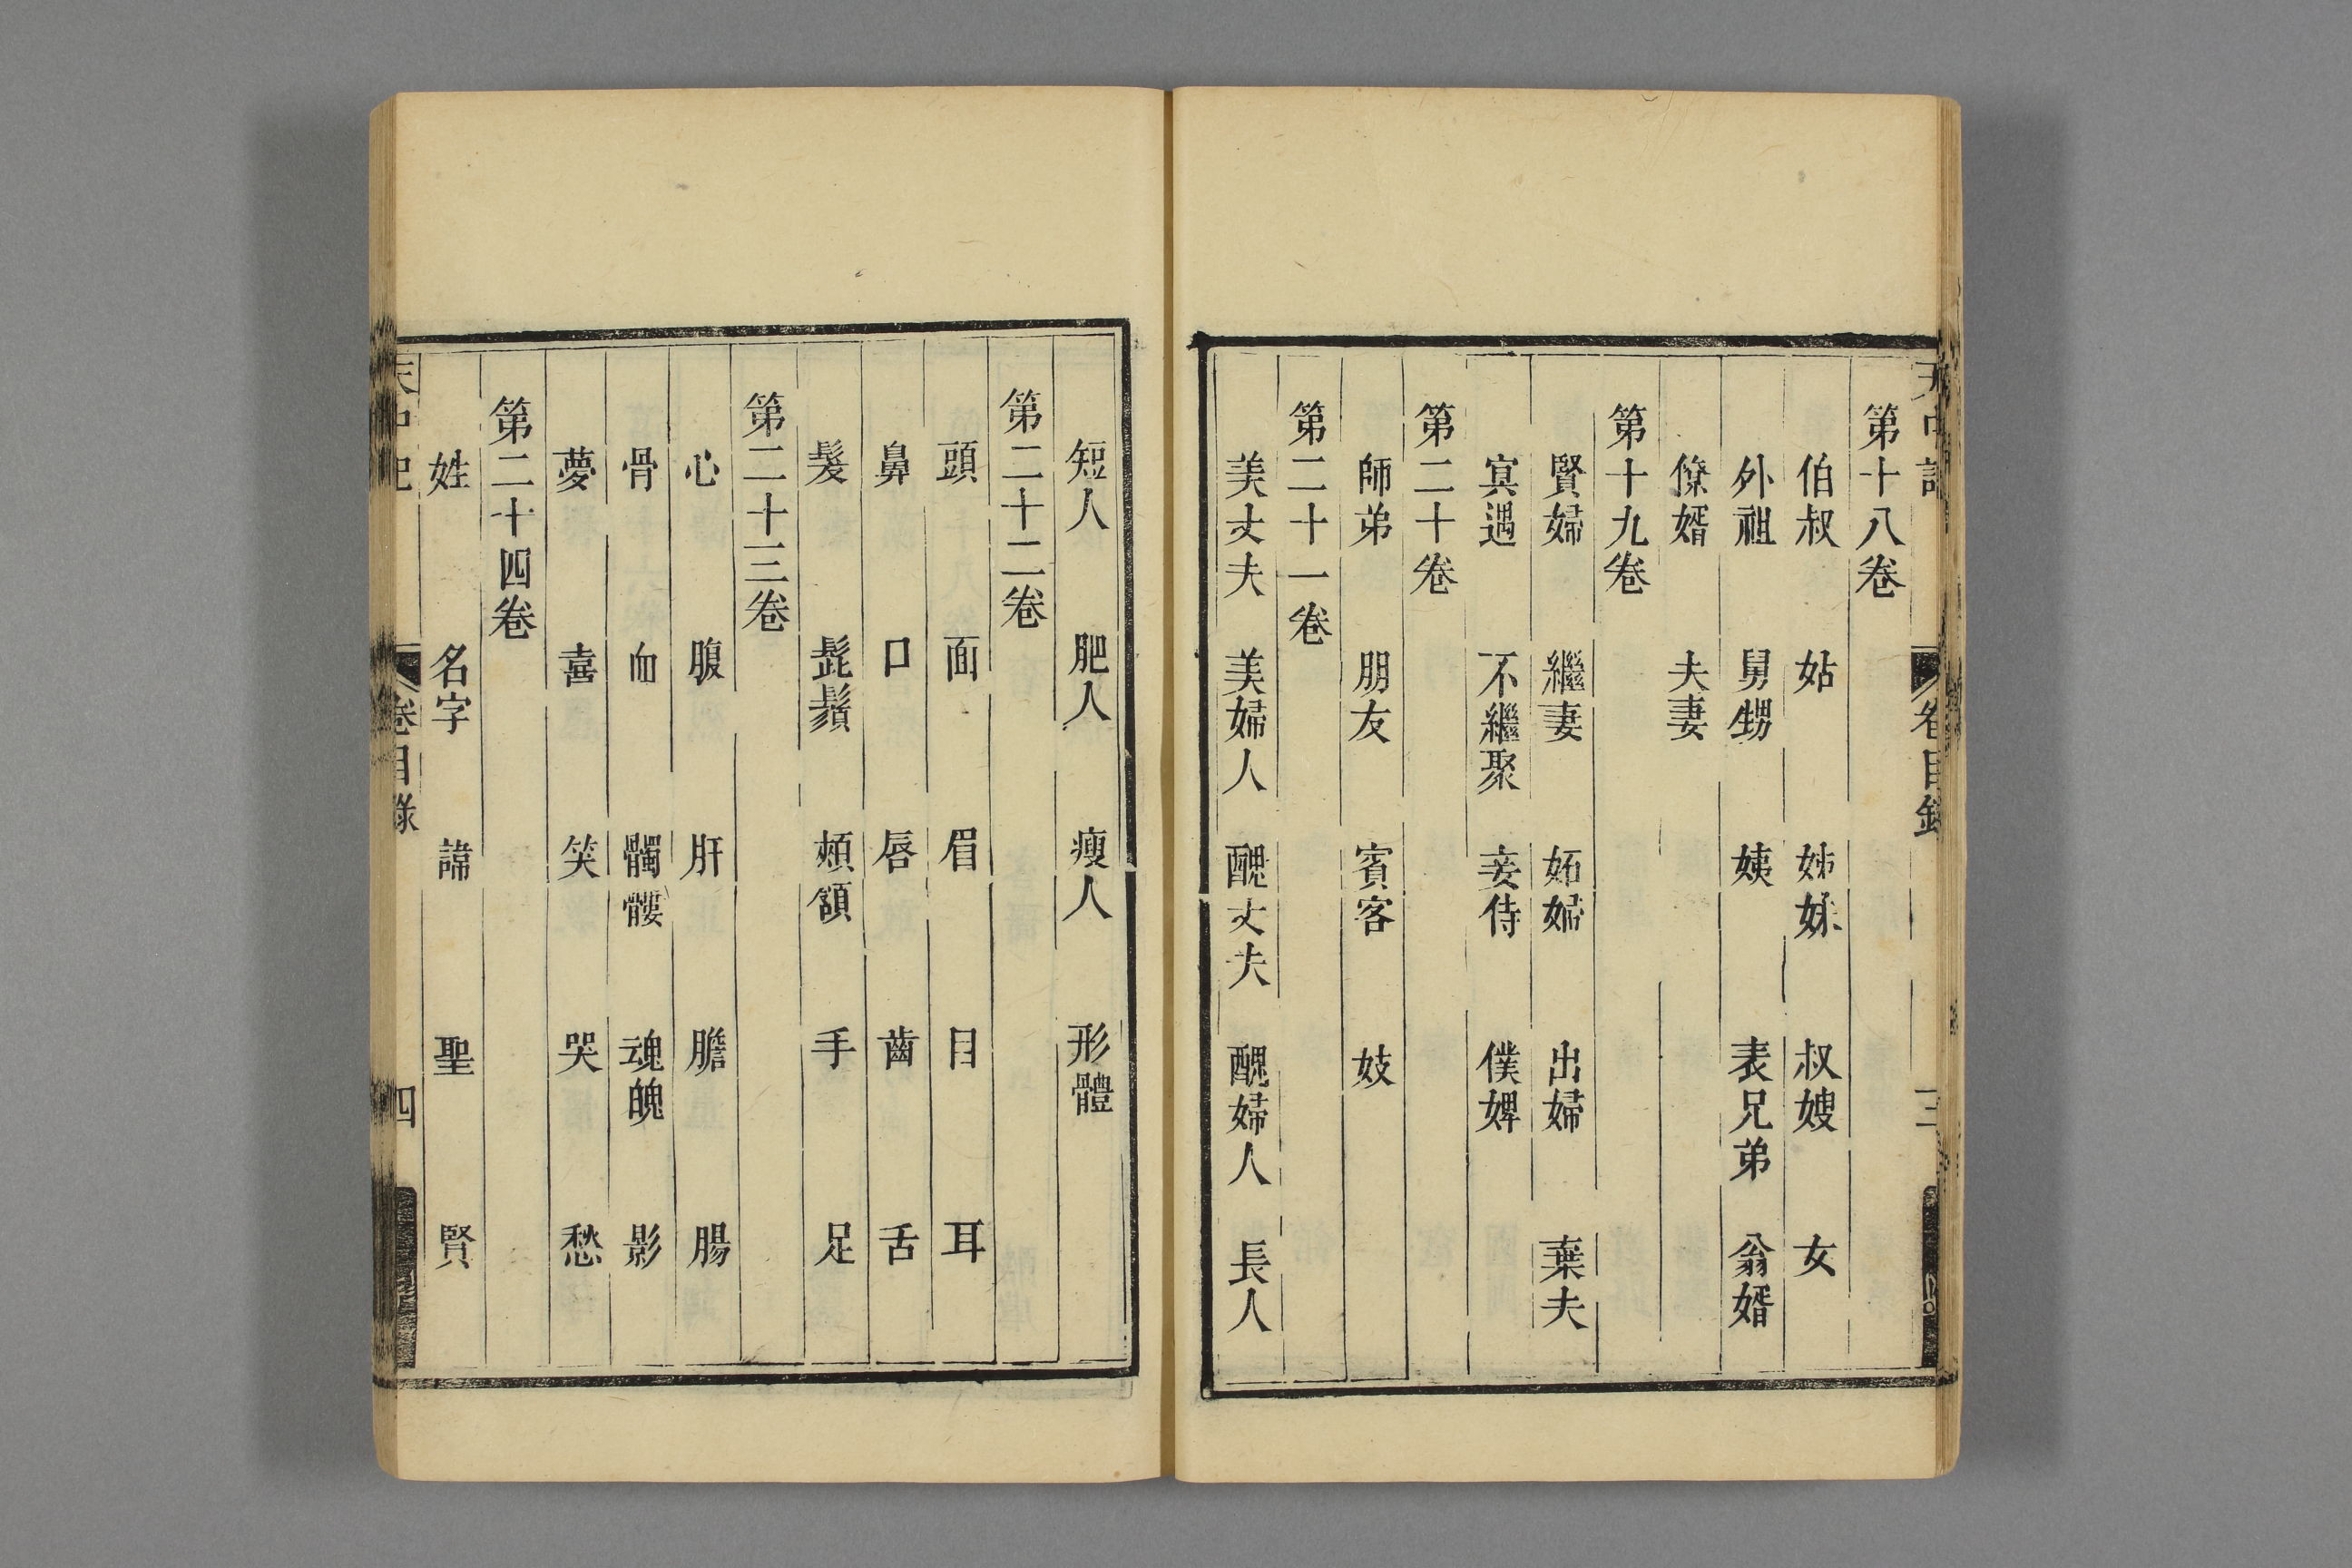 第十八卷
伯叔 姑 姊妹 叔嫂 女
外祖 舅甥 姨 表兄弟 翁婿
僚婿 夫妻
第十九卷
賢婦 繼妻 妬婦 出婦 棄夫
冥遇 不繼娶 妾侍 僕婢
第二十卷
師弟 朋友 賓客 妓
第二十一卷
美丈夫 美婦人 醜丈夫 醜婦人 長人
短人 肥人 瘦人 形體
第二十二卷
頭 面 眉 目 耳
鼻 口 唇 齒 舌
髮 髭鬚 頰頷 手 足
第二十三卷
心 腹 肝 膽 腸
骨 血 髑髏 魂魄 影
夢 喜 笑 哭 愁
第二十四卷
姓 名字 諱 聖 賢
卷目錄
四